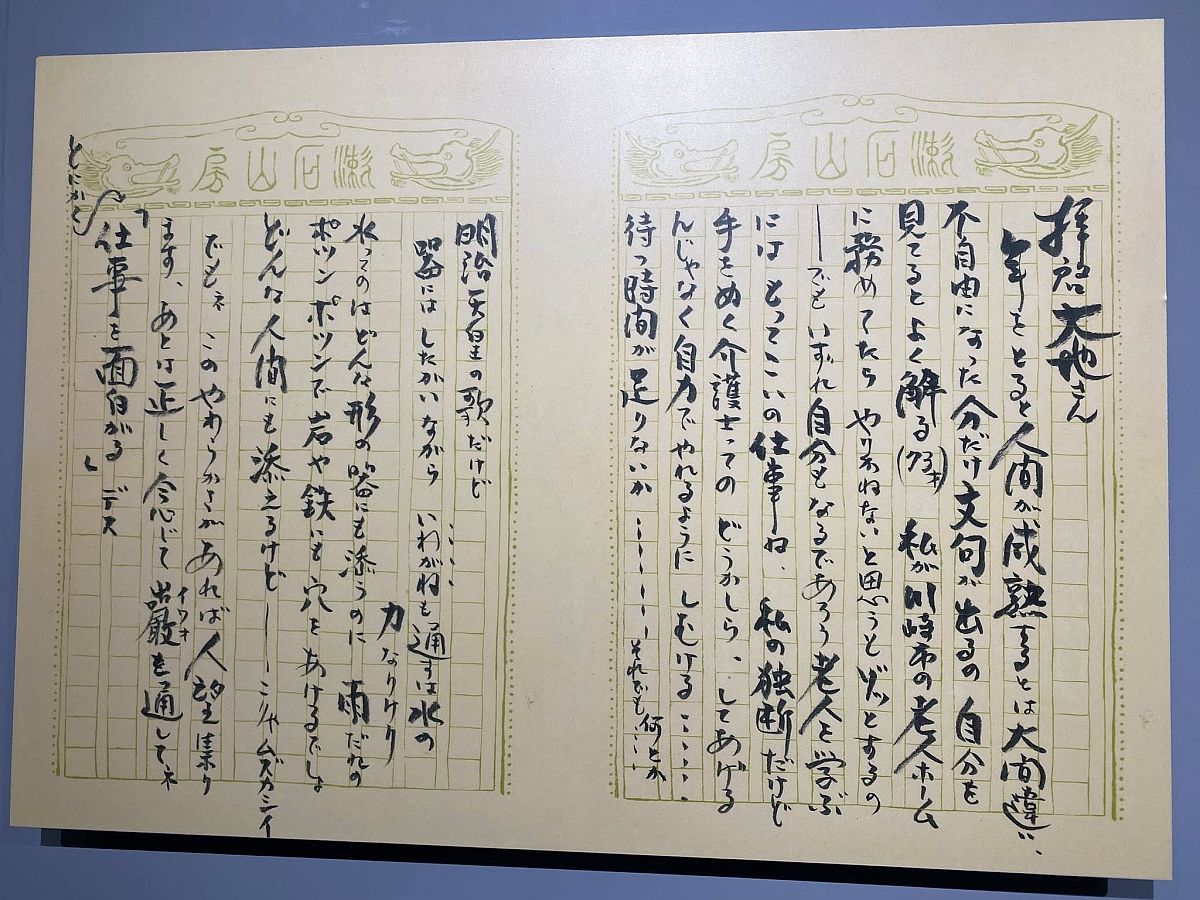 漱石山房
拝啓 大地さん
年をとると人間が成熟するとは大間違い、
不自由になった分だけ文句が出るの 自分を
見てるとよく解る(73才) 私が川崎市の老人ホーム
に務めてたら やりかねないと思うとゾッとするの
——でも いずれ自分もなるであろう老人と学ぶ
にはもってこいの仕事ね、私の独断だけど
手をぬく介護士ってのどうかしら、してあげる
んじゃなく自力でやれるように しむける……
待つ時間が足りないか ————— それでも何とか……
漱石山房
明治天皇の歌だけど
器には したがいながら いわがねも通すは水の
力なりけり
水ってのはどんな形の器にも添うのに 雨だれの
ポツンポツンで岩や鉄にも穴をあけるでしょ
どんな人間にも添えるけど——こりゃムズカシイ
でもネ このやわらかさがあれば人望集り
ます、あとは正しく念じて巖を通してネ
イワオ
とにかく
「仕事を面白がる」デス